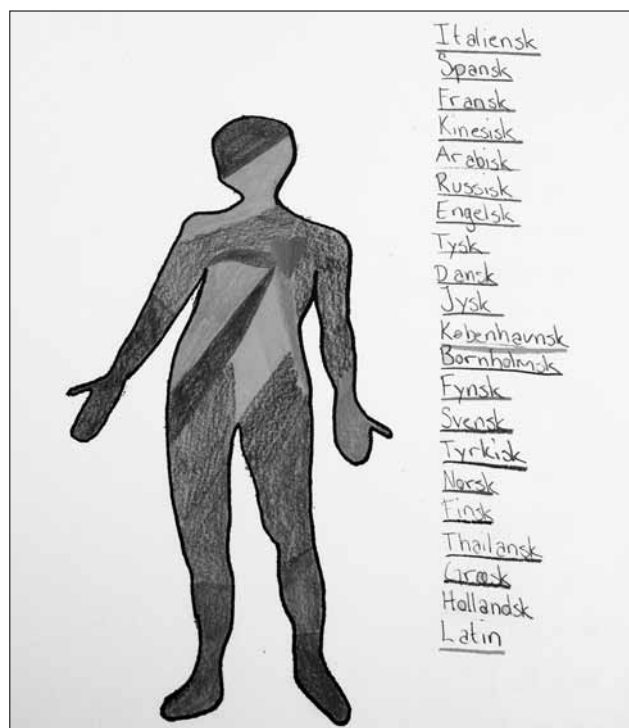 Italiensk
Spansk
Fransk
Kinesisk
Arabisk
Russisk
Engelsk
Tysk
Dansk
Jysk
Københavnsk
Bornholmsk
Fynsk
Svensk
Tyrkisk
Norsk
Finsk
Thailansk
Græsk
Hollandsk
Latin